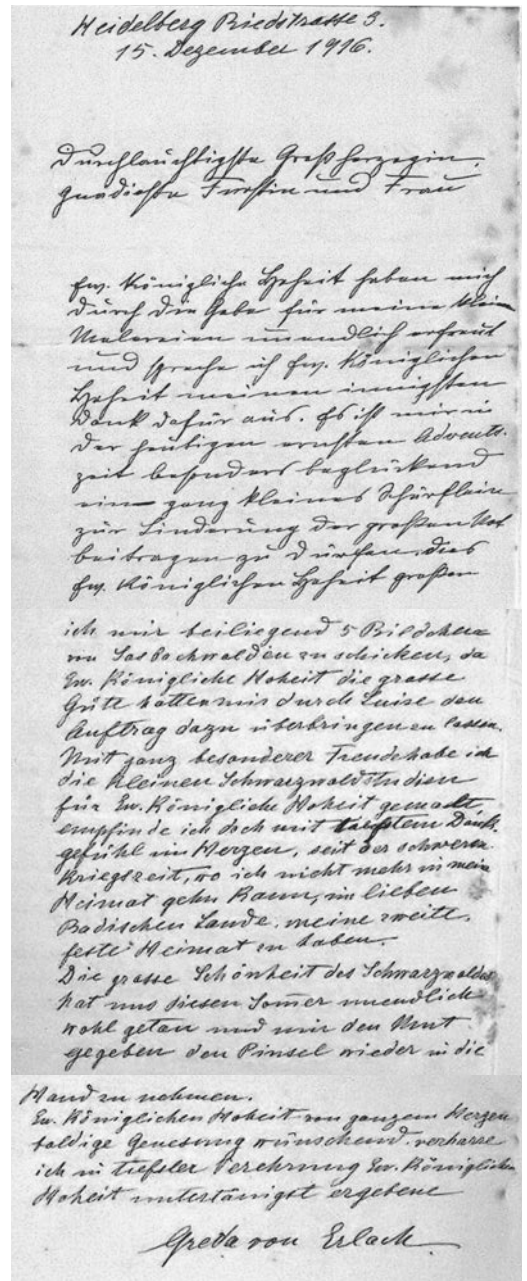 Heidelberg Riedstrasse 3.
15. Dezember 1916.
Durchlauchtigste Großherzogin,
gnädigste Fürstin und Frau
Ew. Königliche Hoheit haben mich
durch die Gabe für meine klein
Malereien unendlich erfreut
und spreche ich Ew. Königlichen
Hoheit meinen innigsten
Dank dafür aus. Es ist mir in
der heutigen ernsten Advents-
zeit besonders beglückend
ein ganz kleines Schärflein
zur Linderung der großen Not
beitragen zu dürfen, dies
Ew. Königlichen Hoheit großen
ich mir beiliegend 5 Bildchen
von Sasbachwalden zu schicken, da
Ew. Königliche Hoheit die grosse
Güte hatten mir durch Luise den
Auftrag dazu überbringen zu lassen.
Mit ganz besonderer Freude habe ich
die kleinen Schwarzwaldstudien
für Ew. Königliche Hoheit gemacht,
empfinde ich doch mit tiefstem Dank-
gefühl im Herzen, seit der schweren
Kriegszeit, wo ich nicht mehr in mein
Heimat gehn kann, im lieben
Badischen Lande, meine zweite,
feste Heimat zu haben.
Die grosse Schönheit des Schwarzwaldes
hat uns diesen Sommer unendlich
wohl getan und mir den Mut
gegeben den Pinsel wieder in die
Hand zu nehmen.
Ew. Königlichen Hoheit von ganzem Herzen
baldige Genesung wünschend, verharre
ich in tiefster Verehrung Ew. Königlichen
Hoheit untertänigst ergebene
Greda von Erlach